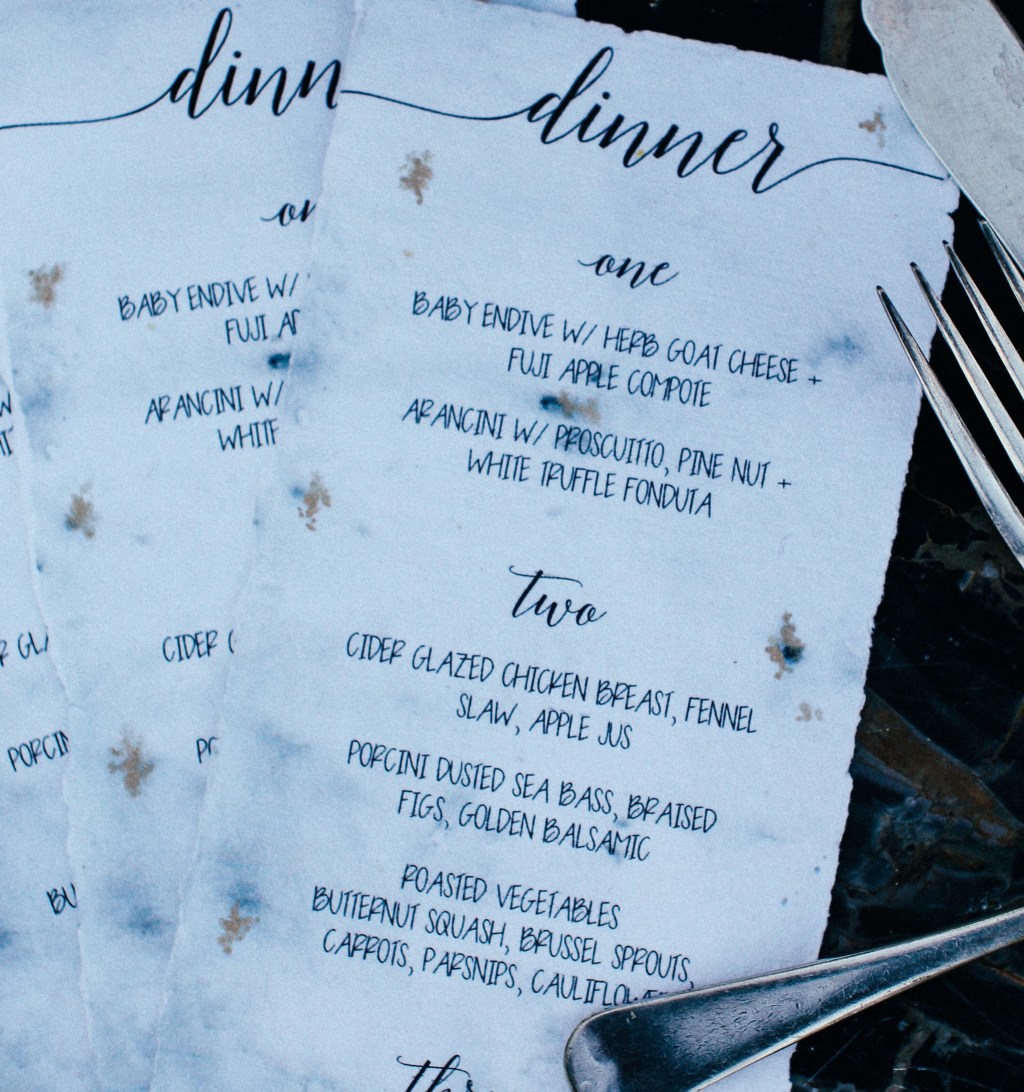 dinner
one
BABY ENDIVE W/ HERB GOAT CHEESE +
FUJI APPLE COMPOTE
ARANCINI W/ PROSCUITTO, PINE NUT +
WHITE TRUFFLE FONDUTA
two
CIDER GLAZED CHICKEN BREAST, FENNEL
SLAW, APPLE JUS
PORCINI DUSTED SEA BASS, BRAISED
FIGS, GOLDEN BALSAMIC
ROASTED VEGETABLES
BUTTERNUT SQUASH, BRUSSEL SPROUTS,
CARROTS, PARSNIPS,
dinn
BABY ENDIVE W/
FUJI
ARANCINI W/
CIDER